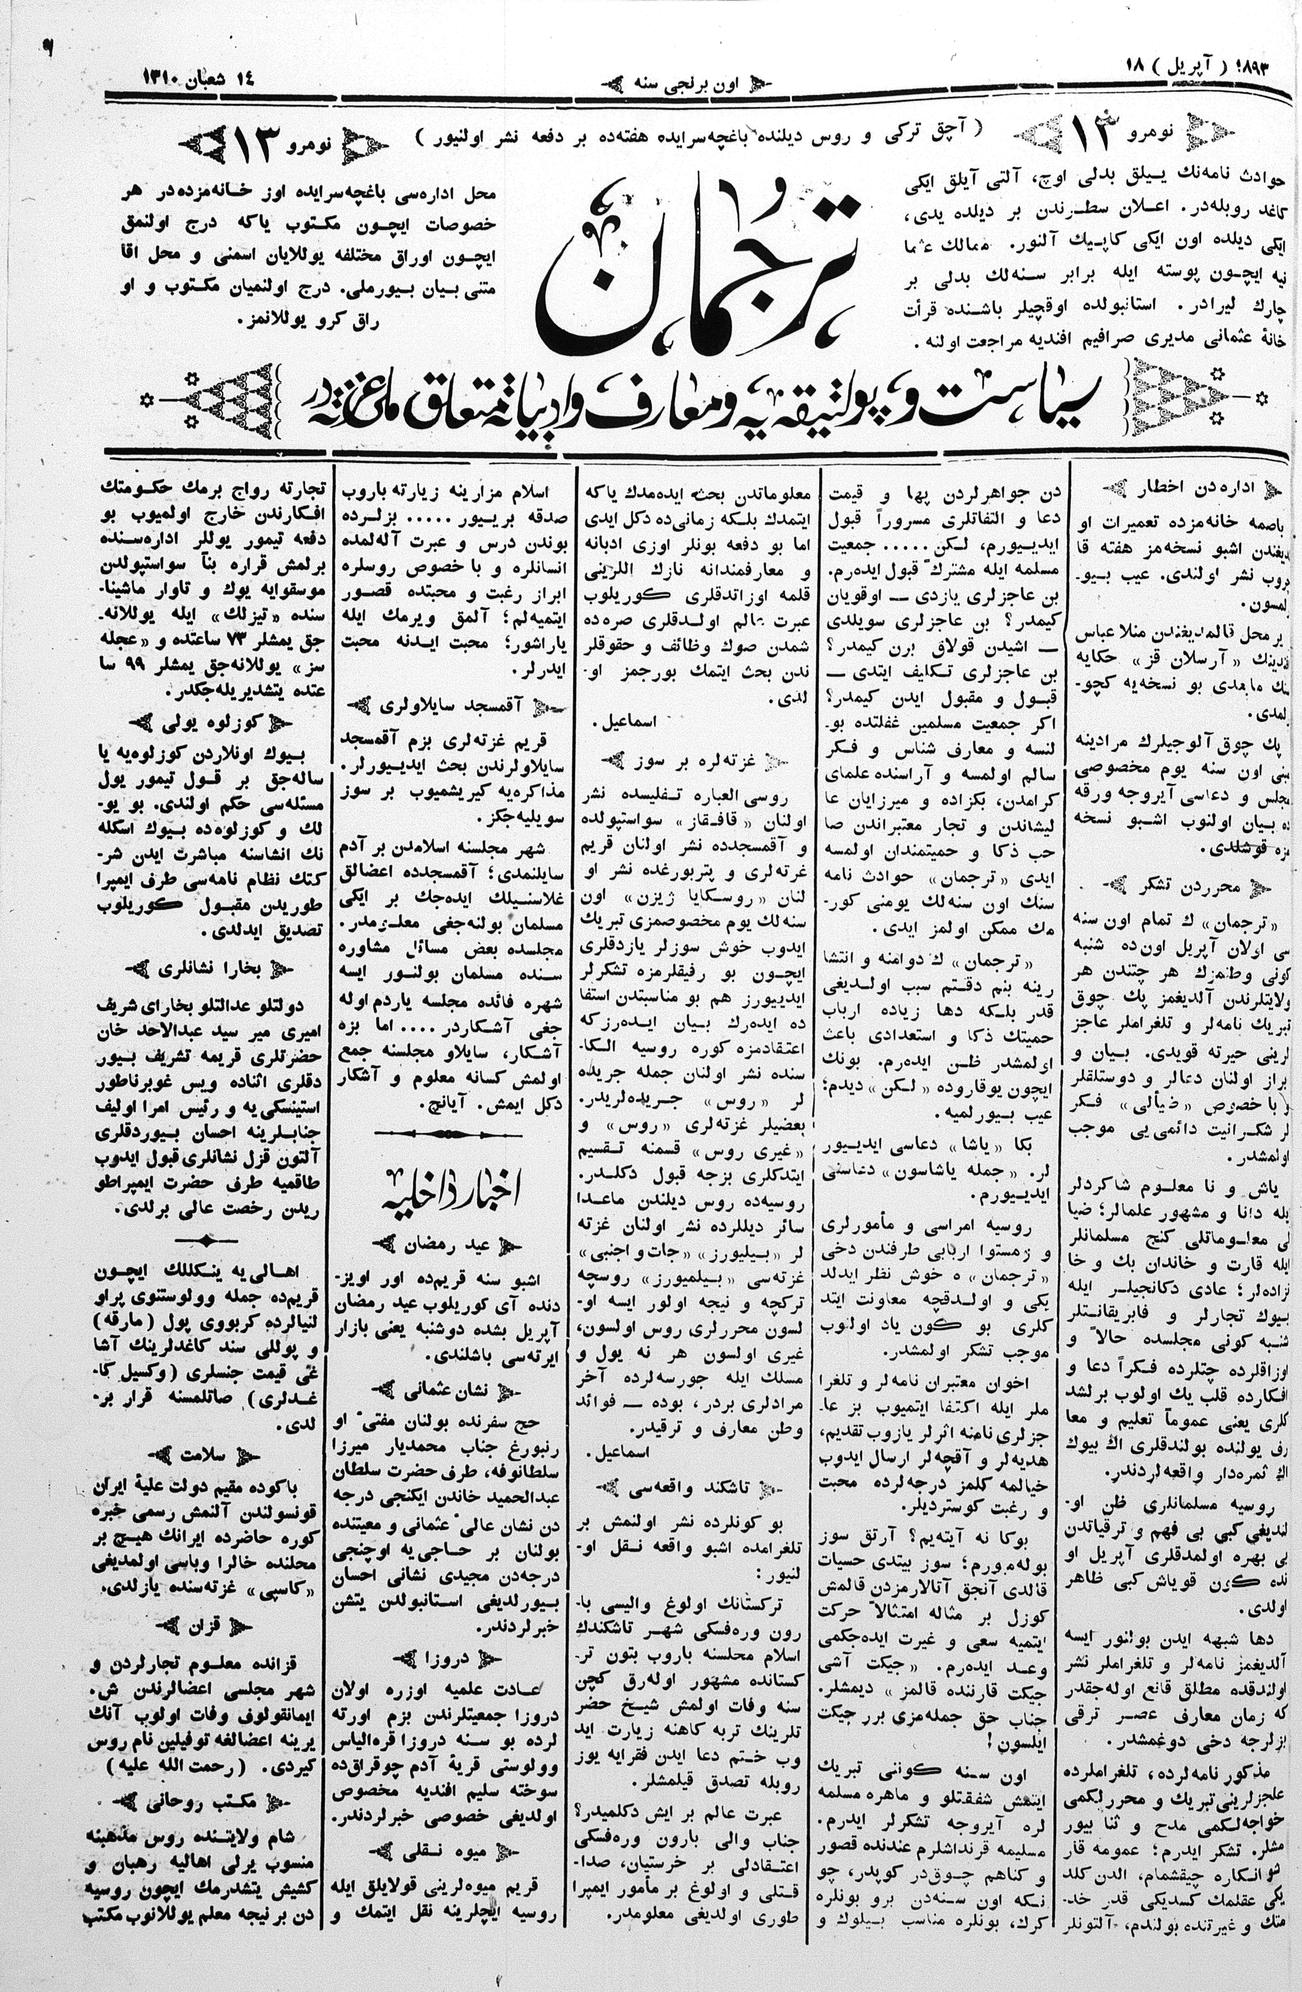 ١٨٩٣ ( آپريل ) ١٨
اون برنجی سنه
١٤ شعبان ١٣١٠
نومرو ١٣
( آچق تركی و روس ديلنده باغچه سرايده هفته ده بر دفعه نشر اولنيور )
نومرو ١٣
حوادث نامه نك ييلق بدلی اوچ، آلتی آيلق ايكی
كاغد روبله در. اعلان سطرندن بر ديلده يدی،
ايكی ديلده اون ايكی كاپيك آلنور. ممالك عثما
نيه ايچون پوسته ايله برابر سنه لك بدلی بر
چارك ليرادر. استانبولده اوقچيلر باشنده قرأت
خانهٔ عثمانی مديری صرافيم افنديه مراجعت اولنه.
ترجمان
محل اداره سی باغچه سرايده اوز خانه مزده در هر
خصوصات ايچون مكتوب ياكه درج اولنمق
ايچون اوراق مختلفه يوللايان اسمنی و محل اقا
متنی بيان بيورملی. درج اولنميان مكتوب و او
راق كرو يوللانمز.
سياست و پولتيقه يه و معارف و ادبياته متعلق ملی غزته در
اداره دن اخطار
باصمه خانه مزده تعميرات او
ديغندن اشبو نسخه مز هفته قا
روب نشر اولندی. عيب بيو-
لمسون.
ير محل قالمديغندن منلا عباس
فندينك «آرسلان قز» حكايه
نك مابعدی بو نسخه يه كچو-
لمدی.
پك چوق آلوجيلرك مرادينه
مبنی اون سنه يوم مخصوصی
مجلس و دعاسی آيروجه ورقه
ده بيان اولنوب اشبو نسخه
مزه قوشلدی.
محرردن تشكر
«ترجمان» ك تمام اون سنه
سی اولان آپريل اون ده شنبه
كونی وطنمزك هر جتندن هر
ولايتلرندن آلديغمز پك چوق
تبريك نامه لر و تلغراملر عاجز
لرينی حيرته قويدی. بيان و
براز اولنان دعالر و دوستلقلر
و با خصوص «ضيألی» فكر
لر شكرانيت دائمی يی موجب
اولمشدر.
ياش و نا معلوم شاكردلر
يله دانا و مشهور علمالر؛ ضيا
لی معلوماتلی كنج مسلمانلر
ايله قارت و خاندان بك و خا
نزاده لر؛ عادی دكانجيلر ايله
بيوك تجارلر و فابريقانتلر
شنبه كونی مجلسده حالاً و
اوزاقلرده چتلرده فكراً دعا و
افكارده قلب يك اولوب برلشد
كلری يعنی عموماً تعليم و معا
رف يولنده بولندقلری اڭ بيوك
اڭ ثمره دار واقعه لردندر.
روسيه مسلمانلری ظن او-
لنديغی كبی بی فهم و ترقياتدن
بی بهره اولمدقلری آپريل او
نده كون قوياش كبی ظاهر
اولدی.
دها شبهه ايدن بولنور ايسه
آلديغمز نامه لر و تلغراملر نشر
اولندقده مطلق قانع اوله جقدر
كه زمان معارف عصر ترقی
بزلرجه دخی دوغمشدر.
مذكور نامه لرده، تلغراملرده
عاجزلرينی تبريك و محررلكمی
خواجه لكمی مدح و ثنا بيور
مشلر. تشكر ايدرم؛ عمومه قار
شو انكاره چيقشمام، الدن كلد
يكی عقلمك كسديكی قدر خد-
متك و غيرتنده بولندم، آلتونلر
دن جواهرلردن پها و قيمت
دعا و التفاتلری مسروراً قبول
ايديورم، لكن..... جمعيت
مسلمه ايله مشتركاً قبول ايده رم.
بن عاجزلری يازدی — اوقويان
كيمدر؟ بن عاجزلری سويلدی
— اشيدن قولاق برن كيمدر؟
بن عاجزلری تكليف ايتدی —
قبول و مقبول ايدن كيمدر؟
اكر جمعيت مسلمين غفلتده بو-
لنسه و معارف شناس و فكر
سالم اولمسه و آراسنده علمای
كرامدن، بكزاده و ميرزايان عا
ليشاندن و تجار معتبراندن صا
حب ذكا و حميتمندان اولمسه
ايدی «ترجمان» حوادث نامه
سنك اون سنه لك يومنی كور-
مك ممكن اولمز ايدی.
«ترجمان» ك دوامنه و انتشا
رينه بنم دقتم سبب اولديغی
قدر بلكه دها زياده ارباب
حميتك ذكا و استعدادی باعث
اولمشدر ظن ايده رم. بونك
ايچون يوقاروده «لكن» ديدم؛
عيب بيورلميه.
بكا «ياشا» دعاسی ايديور
لر. «جمله ياشاسون» دعاسنی
ايديورم.
روسيه امراسی و مأمورلری
و زمستوا اربابی طرفندن دخی
«ترجمان» ه خوش نظر ايدلد
يكی و اولدقچه معاونت ايتد
كلری بو كون ياد اولنوب
موجب تشكر اولمشدر.
اخوان معتبران نامه لر و تلغرا
ملر ايله اكتفا ايتميوب بز عا-
جزلری نامنه اثرلر يازوب تقديم،
هديه لر و آقچه لر ارسال ايدوب
خيالمه كلمز درجه لرده محبت
و رغبت كوسترديلر.
بوكا نه آيته يم؟ آرتق سوز
بوله مورم؛ سوز بيتدی حسيات
قالدی آنجق آتالارمزدن قالمش
كوزل بر مثاله امتثالاً حركت
ايتميه سعی و غيرت ايده جكمی
وعد ايده رم. «جيكت آشی
جيكت قارننده قالمز» ديمشلر.
جناب حق جمله مزی برر جيكت
ايلسون!
اون سنه كوننی تبريك
ايتمش شفقتلو و ماهره مسلمه
لره آيروجه تشكرلر ايدرم.
مسليمه قرنداشلرم عندنده قصور
و كناهم چوق در كوپدر، چو
نكه اون سنه دن برو بونلره
كرك، بونلره مناسب بيلوك و
معلوماتدن بحث ايده مدك ياكه
ايتمدك بلكه زمانی ده دكل ايدی
اما بو دفعه بونلر اوزی اديانه
و معارفمندانه نازك اللرينی
قلمه اوزاتدقلری كوريلوب
عبرت عالم اولدقلری صره ده
شمدن صوك وظائف و حقوقلر
ندن بحث ايتمك بورجمز او-
لدی.
اسماعيل.
غزته لره بر سوز
روسی العباره تفليسده نشر
اولنان «قافقاز» سواستپولده
و آقمسجدده نشر اولنان قريم
غزته لری و پتربورغده نشر او
لنان «روسكايا ژيزن» اون
سنه لك يوم مخصوصمزی تبريك
ايدوب خوش سوزلر يازدقلری
ايچون بو رفيقلرمزه تشكرلر
ايديورز هم بو مناسبتدن استفا
ده ايده رك بيان ايده رزكه
اعتقادمزه كوره روسيه الكا-
سنده نشر اولنان جمله جريده
لر «روس» جريده لريدر.
بعضيلر غزته لری «روس» و
«غيری روس» قسمنه تقسيم
ايتدكلری بزجه قبول دكلدر.
روسيه ده روس ديلندن ماعدا
سائر ديللرده نشر اولنان غزته
لر «بيليورز» «جات و اجنبی»
غزته سی «بيلميورز» روسچه
تركچه و نيجه اولور ايسه او-
لسون محررلری روس اولسون،
غيری اولسون هر نه يول و
مسلك ايله جورسه لرده آخر
مرادلری بردر، بوده — فوائد
وطن معارف و ترقيدر.
اسماعيل.
تاشكند واقعه سی
بو كونلرده نشر اولنمش بر
تلغرامده اشبو واقعه نقل او-
لنيور:
تركستانك اولوغ واليسی با-
رون وره فسكی شهر تاشكندك
اسلام محلسنه باروب بتون تر-
كستانده مشهور اوله رق كچن
سنه وفات اولمش شيخ حضر
تلرينك تربه كاهنه زيارت ايد
وب ختم دعا ايدن فقرايه يوز
روبله تصدق قيلمشلر.
عبرت عالم بر ايش دكلميدر؟
جناب والی بارون وره فسكی
اعتقادلی بر خرستيان، صدا-
قتلی و اولوغ بر مأمور ايمپرا
طوری اولديغی معلومدر.
اسلام مزارينه زيارته باروب
صدقه بريور..... بزلرده
بوندن درس و عبرت آله لمده
انسانلره و با خصوص روسلره
ابراز رغبت و محبتده قصور
ايتميه لم؛ آلمق ويرمك ايله
ياراشور؛ محبت ايدنه محبت
ايدرلر.
آقمسجد سايلاولری
قريم غزته لری بزم آقمسجد
سايلاولرندن بحث ايديورلر.
مذاكره يه كيريشميوب بر سوز
سويليه جكز.
شهر مجلسنه اسلامدن بر آدم
سايلنمدی؛ آقمسجدده اعضالق
غلاسنيلك ايده جك بر ايكی
مسلمان بولنه جغی معلومدر.
مجلسده بعض مسائل مشاوره
سنده مسلمان بولنور ايسه
شهره فائده مجلسه ياردم اوله
جغی آشكاردر.... اما بزه
آشكار، سايلاو مجلسنه جمع
اولمش كسانه معلوم و آشكار
دكل ايمش. آيانچ.
اخبار داخليه
عيد رمضان
اشبو سنه قريم ده اور اويز-
دنده آی كوريلوب عيد رمضان
آپريل بشده دوشنبه يعنی بازار
ايرته سی باشلندی.
نشان عثمانی
حج سفرنده بولنان مفتیٔ او
رنبورغ جناب محمديار ميرزا
سلطانوفه، طرف حضرت سلطان
عبدالحميد خاندن ايكنجی درجه
دن نشان عالیٔ عثمانی و معيتنده
بولنان بر حاجی يه اوچنجی
درجه دن مجيدی نشانی احسان
بيورلديغی استانبولدن يتشن
خبرلردندر.
دروزا
عادت علميه اوزره اولان
دروزا جمعيتلرندن بزم اورته
لرده بو سنه دروزا قره الياس
وولوستی قريهٔ آدم چوقراق ده
سوخته سليم افنديه مخصوص
اولديغی خصوصی خبرلردندر.
ميوه نقلی
قريم ميوه لرينی قولايلق ايله
روسيه ايچلرينه نقل ايتمك و
تجارته رواج برمك حكومتك
افكارندن خارج اولميوب بو
دفعه تيمور يوللر اداره سنده
برلمش قراره بناً سواستپولدن
موسقوايه يوك و تاوار ماشينا-
سنده «تيزلك» ايله يوللانه-
جق يمشلر ٧٣ ساعتده و «عجله
سز» يوللانه جق يمشلر ٩٩ سا
عتده يتشديريله جكدر.
كوزلوه يولی
بيوك اونلاردن كوزلوه يه يا
ساله جق بر قول تيمور يول
مسئله سی حكم اولندی. بو يو-
لك و كوزلوه ده بيوك اسكله
نك انشاسنه مباشرت ايدن شر-
كتك نظام نامه سی طرف ايمپرا
طوريدن مقبول كوريلوب
تصديق ايدلدی.
بخارا نشانلری
دولتلو عدالتلو بخارای شريف
اميری مير سيد عبدالاحد خان
حضرتلری قريمه تشريف بيور
دقلری اثناده ويس غوبرناطور
استينسكی يه و رئيس امرا اوليف
جنابلرينه احسان بيوردقلری
آلتون قزل نشانلری قبول ايدوب
طاقميه طرف حضرت ايمپراطو
ريدن رخصت عالی برلدی.
اهالی يه ينكللك ايچون
قريم ده جمله وولوستنوی پراو
لنيالرده كربووی پول (مارقه)
و پوللی سند كاغدلرينك آشا
غی قيمت جنسلری (وكسيل كا-
غدلری) صاتلمسنه قرار بر-
لدی.
سلامت
باكوده مقيم دولت عليهٔ ايران
قونسولندن آلنمش رسمی خبره
كوره حاضرده ايرانك هيچ بر
محلنده خالرا وباسی اولمديغی
«كاسپی» غزته سنده يازلدی.
قزان
قزانده معلوم تجارلردن و
شهر مجلسی اعضالرندن ش.
ايمانقولوف وفات اولوب آنك
يرينه اعضالغه توفيلين نام روس
كيردی. (رحمت الله عليه)
مكتب روحانی
شام ولايتنده روس مذهبنه
منسوب يرلی اهاليه رهبان و
كشيش يتشدرمك ايچون روسيه
دن بر نيجه معلم يوللانوب مكتب